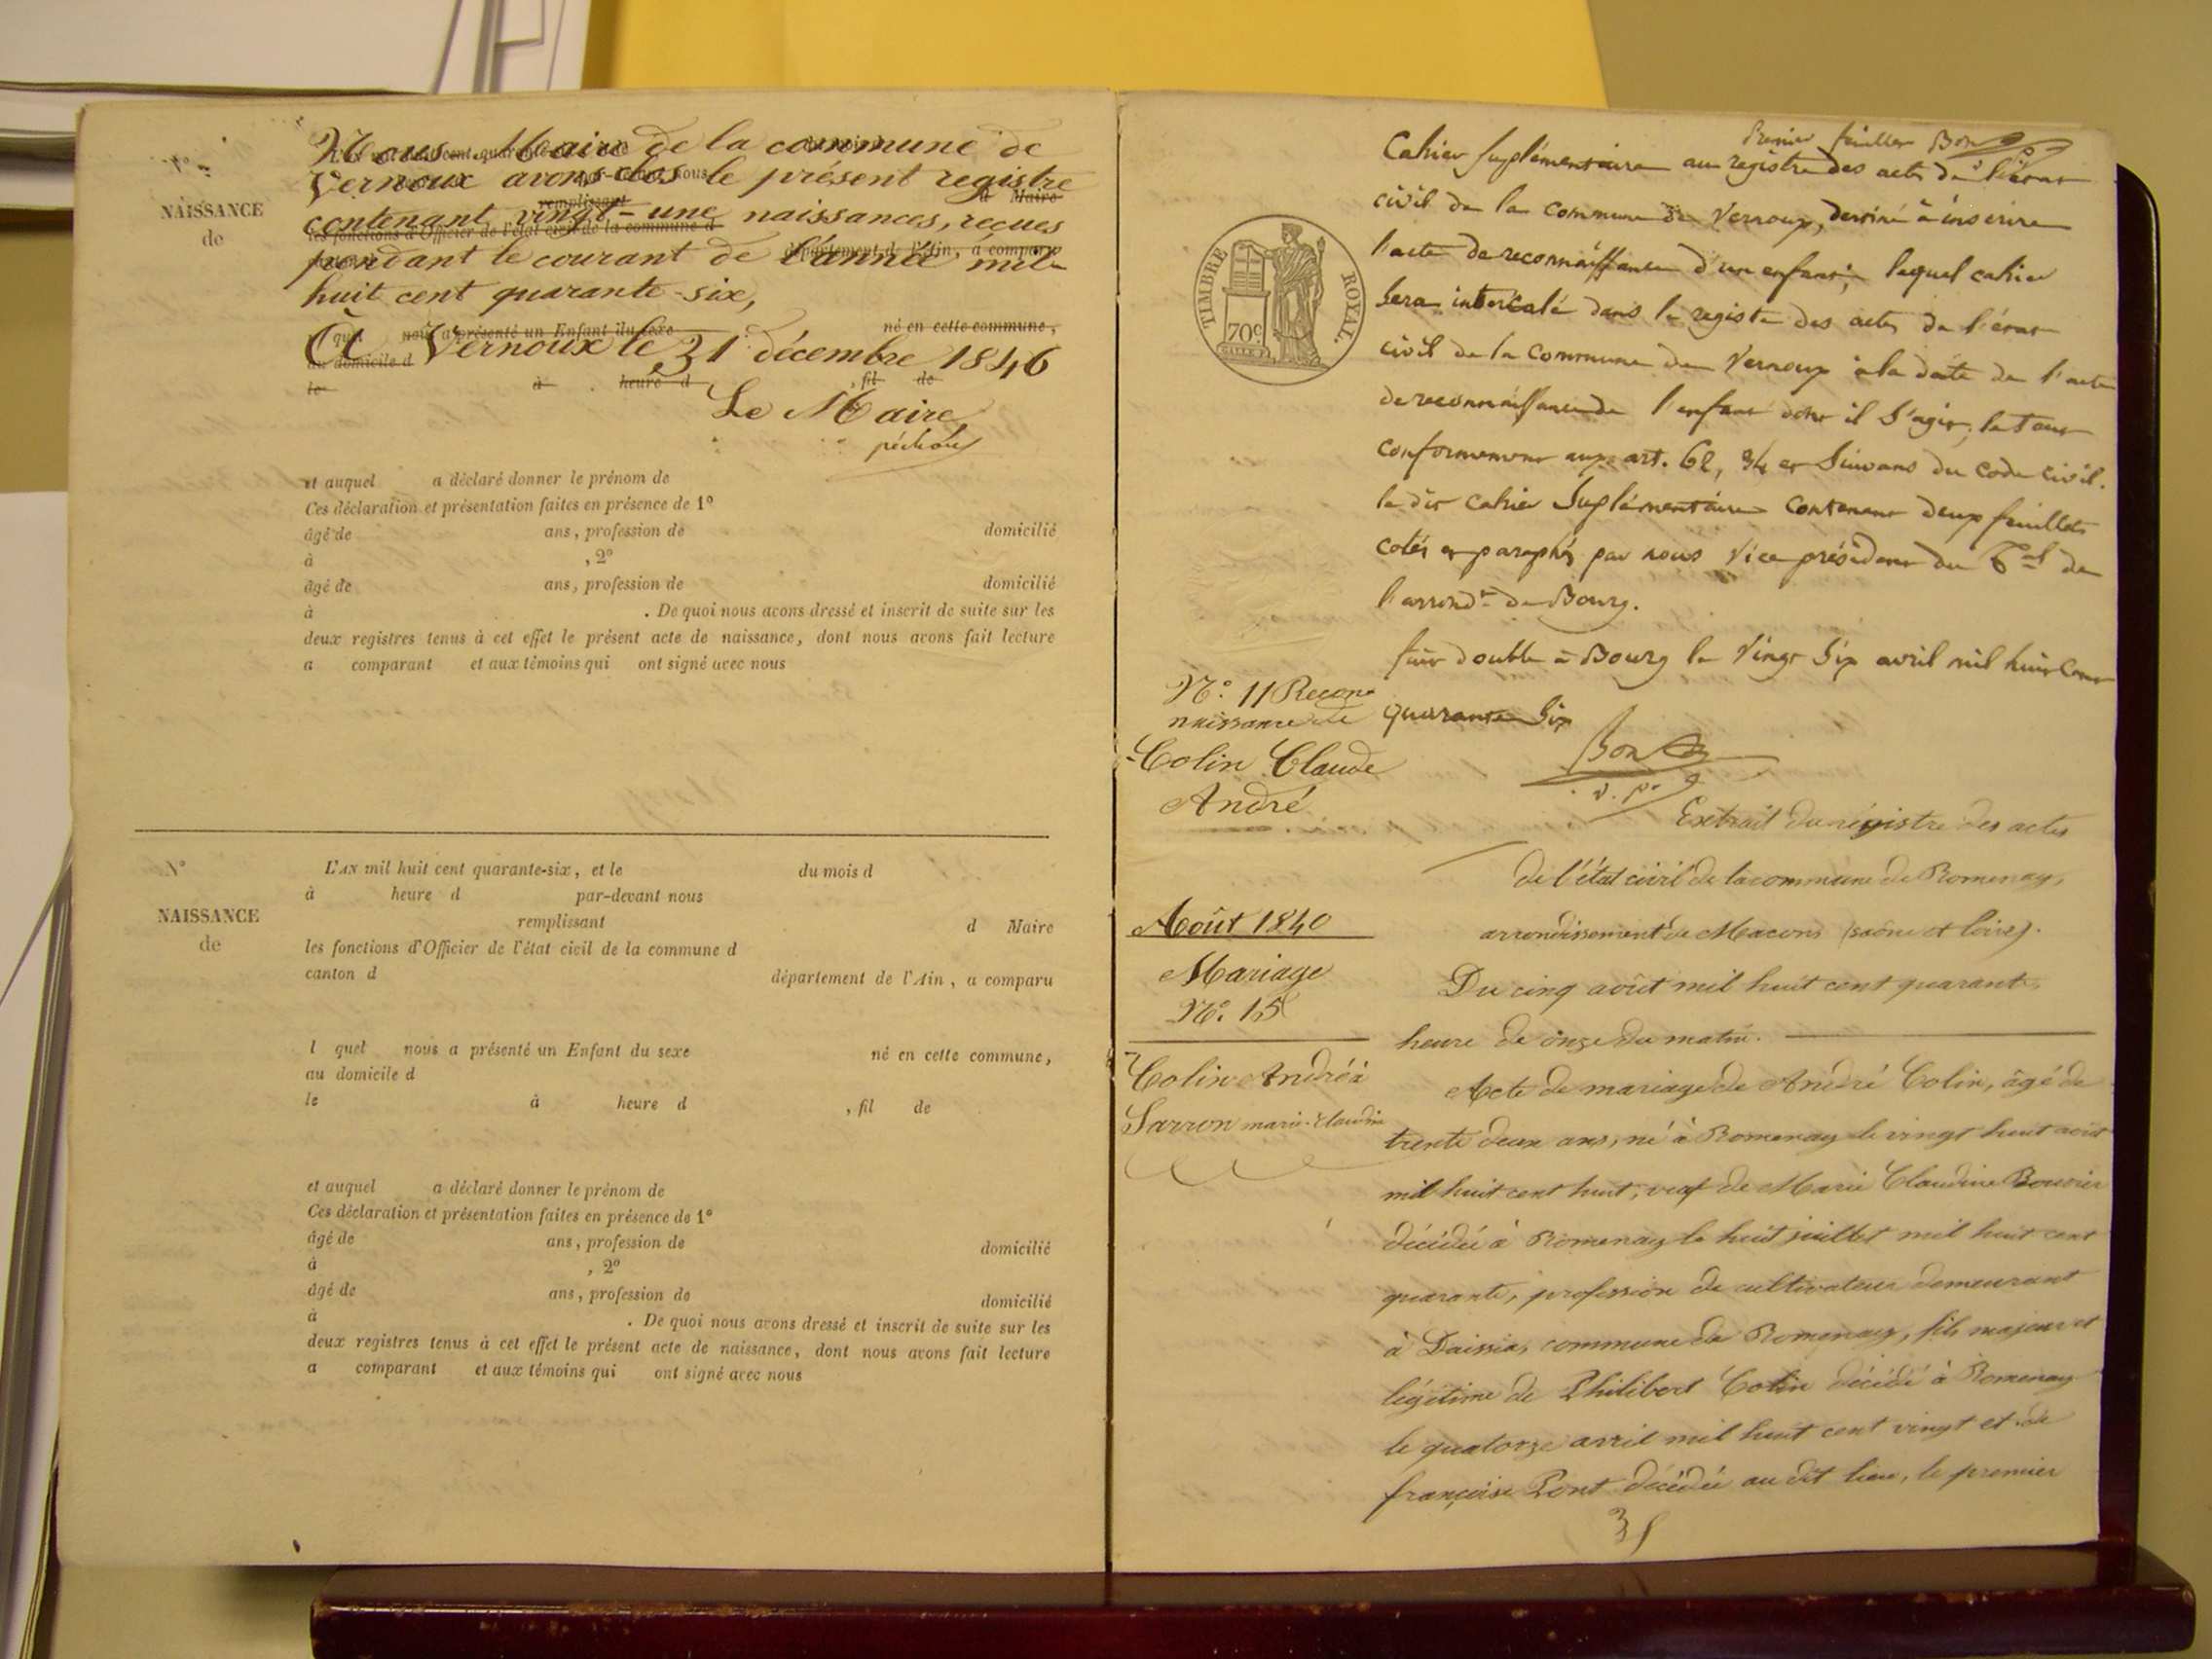 Nous Maire de la commune de
Vernoux avons clos le présent registre
contenant vingt-une naissances, reçues
pendant le courant de l'année mil
huit cent quarante-six,
A Vernoux le 31 décembre 1846
Le Maire
N°
NAISSANCE
de
remplissant
d Maire
les fonctions d'Officier de l'état civil de la commune d
département de l'Ain, a comparu
quel nous a présenté un Enfant du sexe né en cette commune,
au domicile d
le à heure d , fil de
et auquel a déclaré donner le prénom de
Ces déclaration et présentation faites en présence de 1°
âgé de ans, profession de domicilié
à , 2°
âgé de ans, profession de domicilié
à . De quoi nous avons dressé et inscrit de suite sur les
deux registres tenus à cet effet le présent acte de naissance, dont nous avons fait lecture
a comparant et aux témoins qui ont signé avec nous
N°
NAISSANCE
de
L'AN mil huit cent quarante-six, et le du mois d
à heure d par-devant nous
remplissant d Maire
les fonctions d'Officier de l'état civil de la commune d
canton d département de l'Ain, a comparu
l quel nous a présenté un Enfant du sexe né en cette commune,
au domicile d
le à heure d , fil de
et auquel a déclaré donner le prénom de
Ces déclaration et présentation faites en présence de 1°
âgé de ans, profession de domicilié
à , 2°
âgé de ans, profession de domicilié
à . De quoi nous avons dressé et inscrit de suite sur les
deux registres tenus à cet effet le présent acte de naissance, dont nous avons fait lecture
a comparant et aux témoins qui ont signé avec nous
Premier feuillet Bon
Cahier suplémentaire au registre des actes de l'état
civil de la commune de Vernoux, destiné à insérire
l'acte de reconnaissance d'un enfant, lequel cahier
sera intercalé dans le registre des actes de l'état
civil de la commune de Vernoux à la date de l'acte
de reconnaissance de l'enfant dont il s'agit, le tout
conformement aux art. 62, 34 et suivans du code civil.
le dit cahier suplémentaire contenant deux feuillets
cotés et paraphés par nous Vice président du Tal de
l'arrondt de Bourg.
fait double à Bourg le vingt six avril mil huit cent
quarante six
Bon
v. p.
TIMBRE ROYAL.
70c.
N°. 11 Recon-
naissance de
Colin Claude
André
Août 1840
Mariage
N°. 15
Colin André à
Sarron marie-Claudine
Extrait du régistre des actes
de l'état civil de la commune de Romenay,
arrondissement de Macons (saône et loire).
Du cinq août mil huit cent quarante,
heure de onze du matin.
Acte de mariage de André Colin, âgé de
trente deux ans, né à Romenay le vingt huit août
mil huit cent huit, veuf de Marie Claudine Bouvier
décédée à Romenay le huit juillet mil huit cent
quarante, profession de cultivateur demeurant
à commune de Romenay, fils majeur et
légitime de Philibert Colin décédé à Romenay
le quatorze avril mil huit cent vingt et de
françoise Pont décédée au dit lieu, le premier